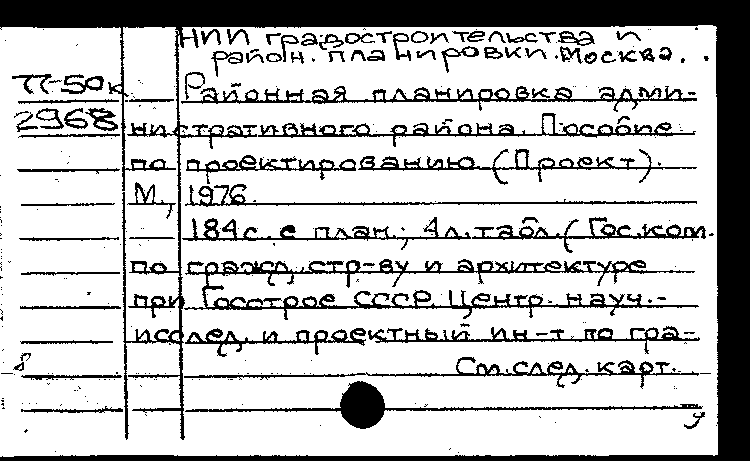 НИИ градостроительства и
район. планировки. Москва.
П-50к
2968
Районная планировка адми-
нистративного района. Пособие
по проектированию. (Проект).
М., 1976.
184 с. с план.; 4 л. табл. (Гос. ком.
по гражд. стр-ву и архитектуре
при Госстрое СССР. Центр. науч.-
исслед. и проектный ин-т по гра-
8
См. след. карт.